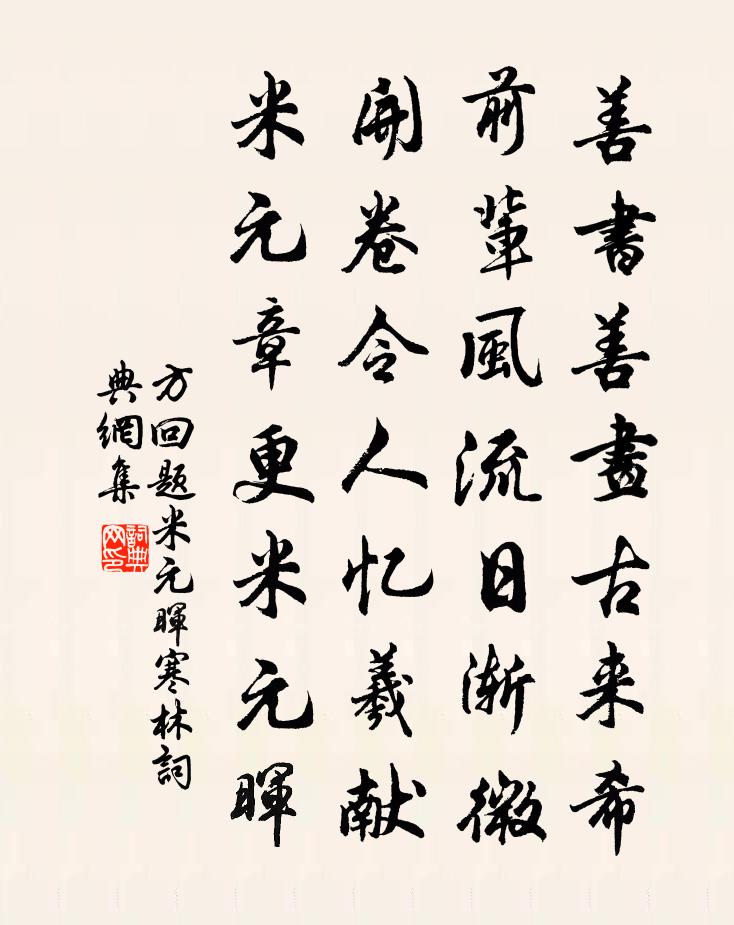 善書善畫古来希
前輩風流日漸微
開卷令人忆羲献
米元章更米元暉
方回題米元暉寒林詞
典網集
詞典网印